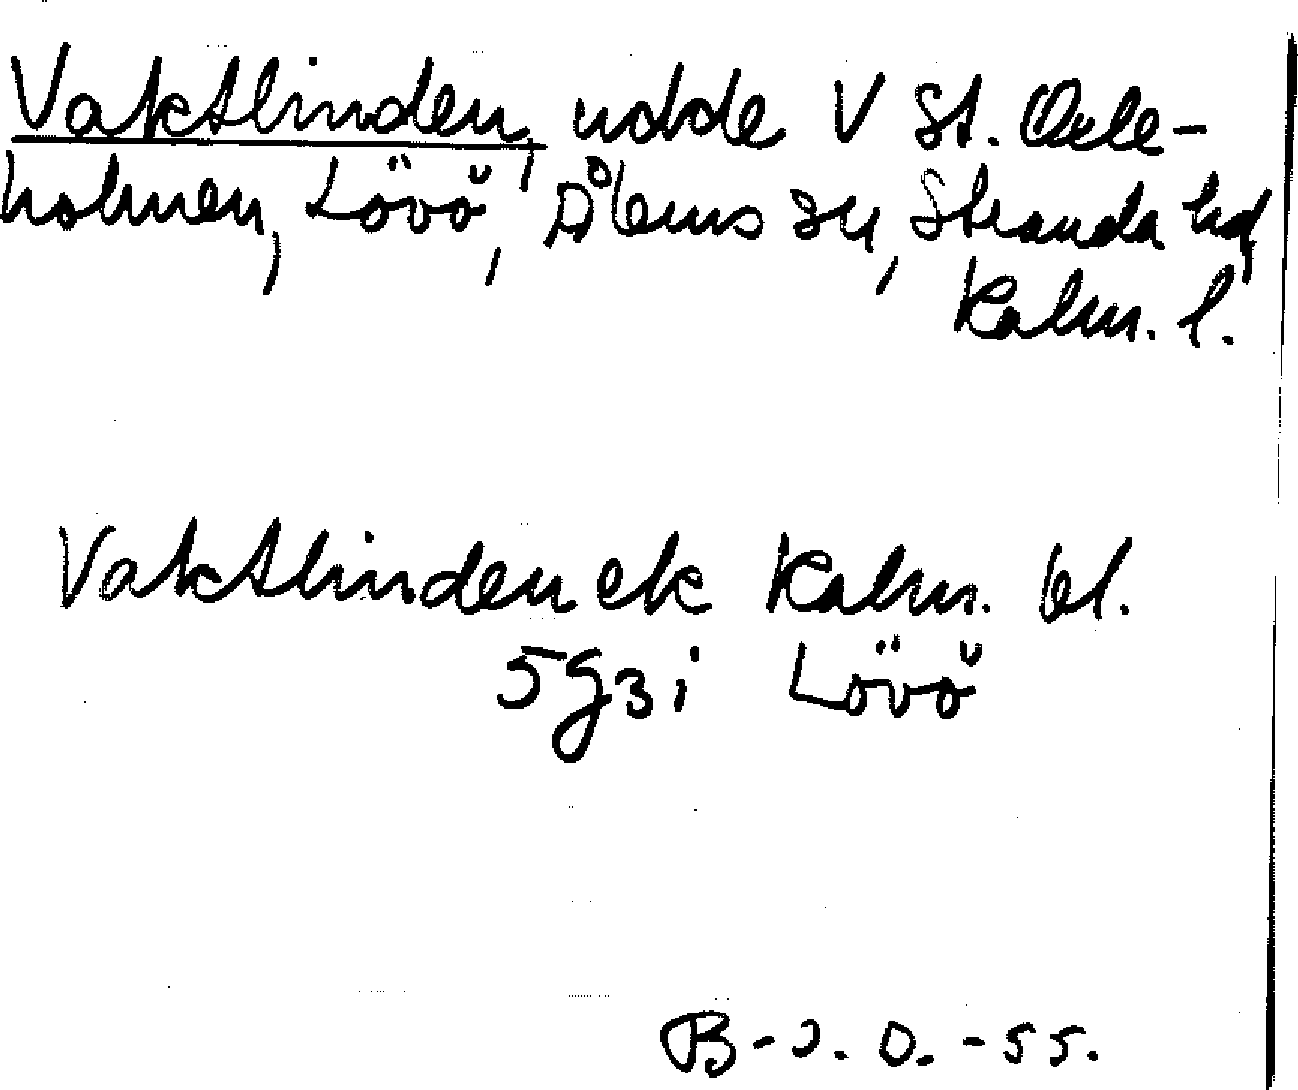 Vaktlinden, udde V St. Oxle-
holmen, Lövö, Ålems sn, Stranda hd,
Kalm. l.
Vaktlinden ek Kalm. bl.
5g3i Lövö
B-J. O. -55.